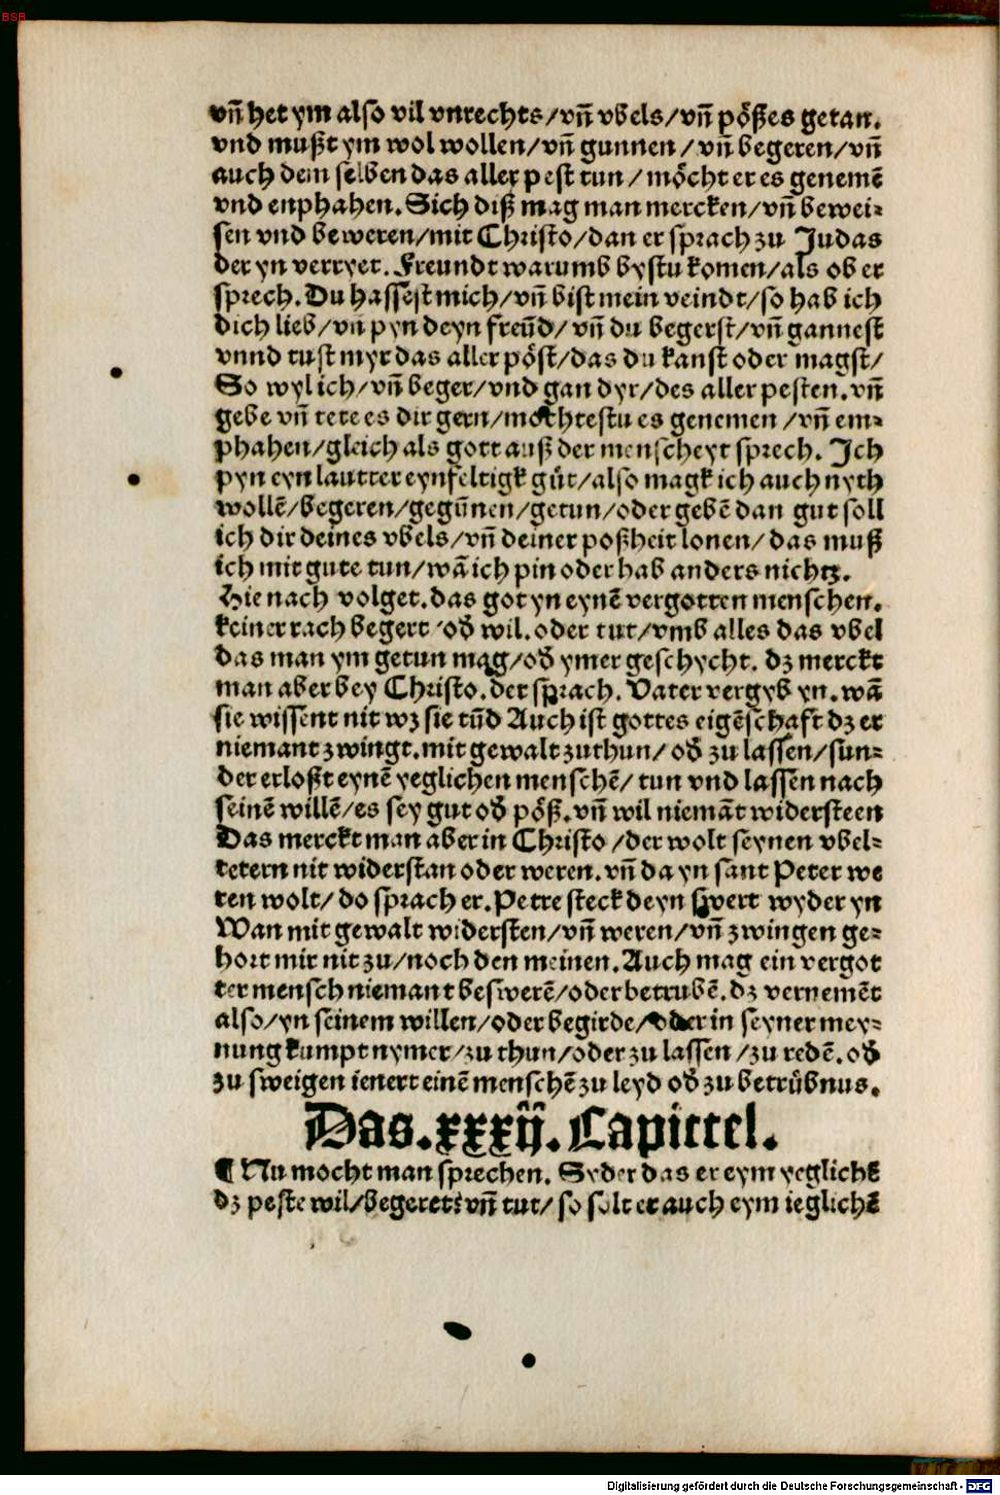 BSB
vñ het ym also vil vnrechts/vñ vbels/vñ pößes getan.
vnd mußt ym wol wollen/vñ gunnen/vñ begeren/vñ
auch dem selben das aller pest tun/möcht er es genemē
vnd enphahen. Sich diß mag man mercken/vñ bewei⸗
sen vnd beweren/mit Christo/dan er sprach zu Judas
der yn verryet. Freundt warumb bystu komen/als ob er
sprech. Du hassest mich/vñ bist mein veindt/so hab ich
dich lieb/vñ pyn deyn freūd/vñ du begerst/vñ gannest
vnnd tust myr das aller pöst/das du kanst oder magst/
So wyl ich/vñ beger/vnd gan dyr/des aller pesten. vñ
gebe vñ tete es dir gern/mochtestu es genemen/vñ em⸗
phahen/gleich als gott auß der menscheyt sprech. Ich
pyn eyn lautter eynfeltigk gůt/also magk ich auch nyth
wollē/begeren/gegūnen/getun/oder gebē dan gut soll
ich dir deines vbels/vñ deiner poßheit lonen/das muß
ich mit gute tun/wā ich pin oder hab anders nichtz.
Hie nach volget. das got yn eynē vergotten menschen.
keiner rach begert/oď wil. oder tut/vmb alles das vbel
das man ym getun mag/oď ymer geschycht. dz merckt
man aber bey Christo. der sprach. Vater vergyb yn. wā
sie wissent nit wz sie tūd Auch ist gottes eigēschaft dz er
niemant zwingt. mit gewalt zuthun/oď zu lassen/sun⸗
der erloßt eynē yeglichen menschē/tun vnd lassen nach
seinē willē/es sey gut oď pöß. vñ wil niemāt widersteen
Das merckt man aber in Christo/der wolt seynen vbel⸗
tetern nit widerstan oder weren. vñ da yn sant Peter we
ren wolt/do sprach er. Petre steck deyn swert wyder yn
Wan mit gewalt widersten/vñ weren/vñ zwingen ge⸗
hort mir nit zu/noch den meinen. Auch mag ein vergot
ter mensch niemant beswerē/oder betrubē. dz vernemēt
also/yn seinem willen/oder begirde/oder in seyner mey⸗
nung kumpt nymer/zu thun/oder zu lassen/zu redē. oď
zu sweigen ienert einē menschē zu leyd oď zu betrůbnus.
Das. xxxij. Capittel.
¶ Nu mocht man sprechen. Syder das er eym yeglichē
dz peste wil/begeret/vñ tut/so solt er auch eym ieglichē
Digitalisierung gefördert durch die Deutsche Forschungsgemeinschaft - DFG